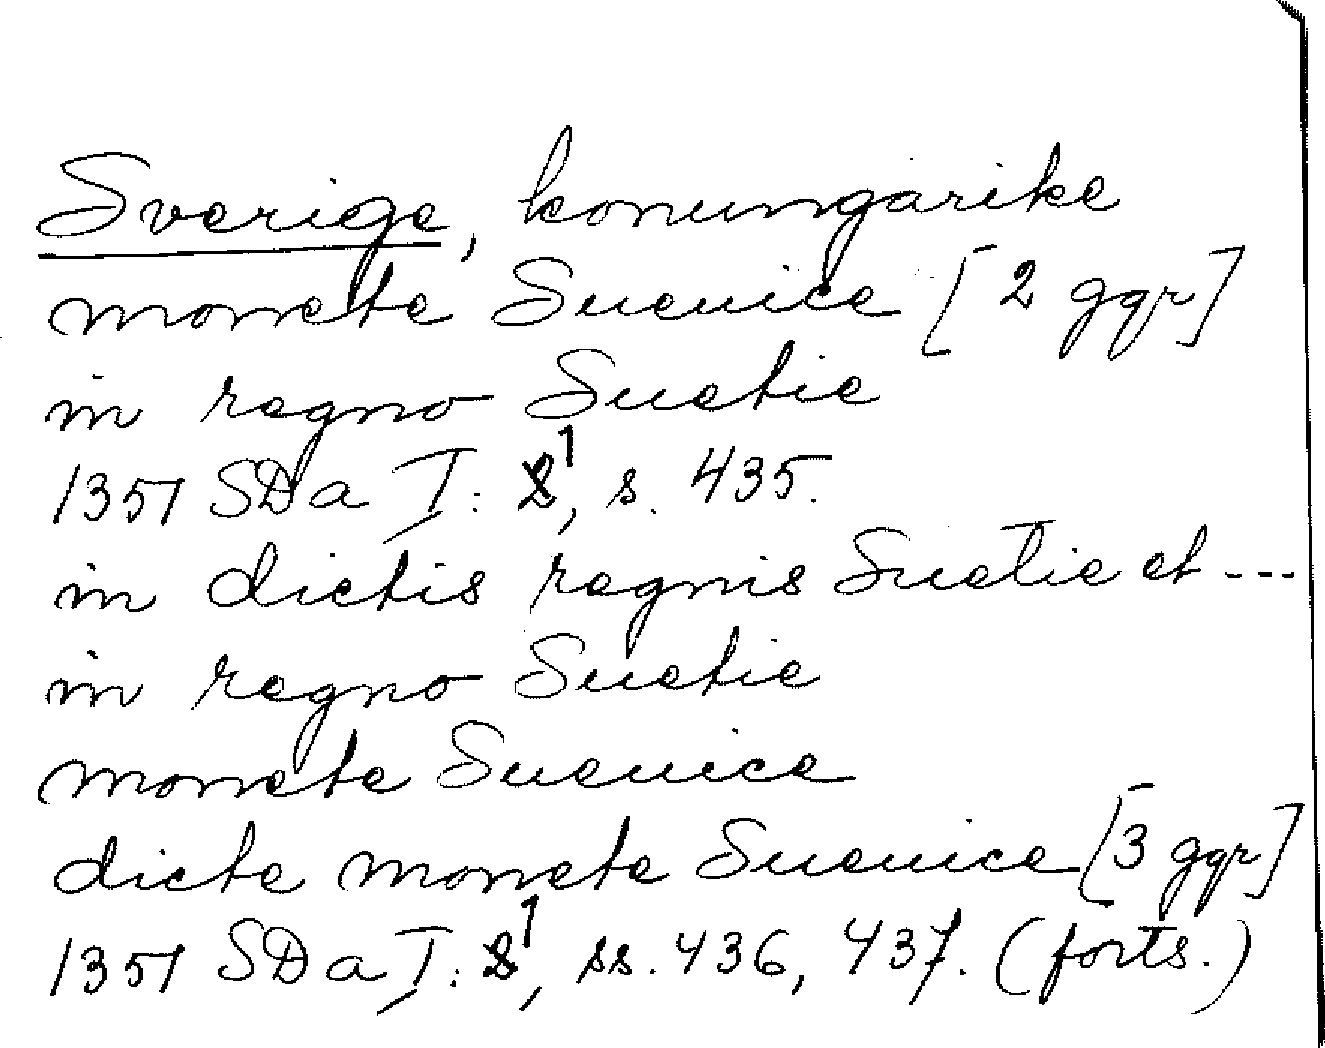 Sverige, konungarike
monete Sueuice [2 ggr]
in regno Suetie
1351 SDa I: 1, s. 435.
in dictis regnis Suetie et ---
in regno Suetie
monete Sueuice
dicte monete Sueuice [3 ggr]
1351 SDa I: 1, ss. 436, 437. (forts.)